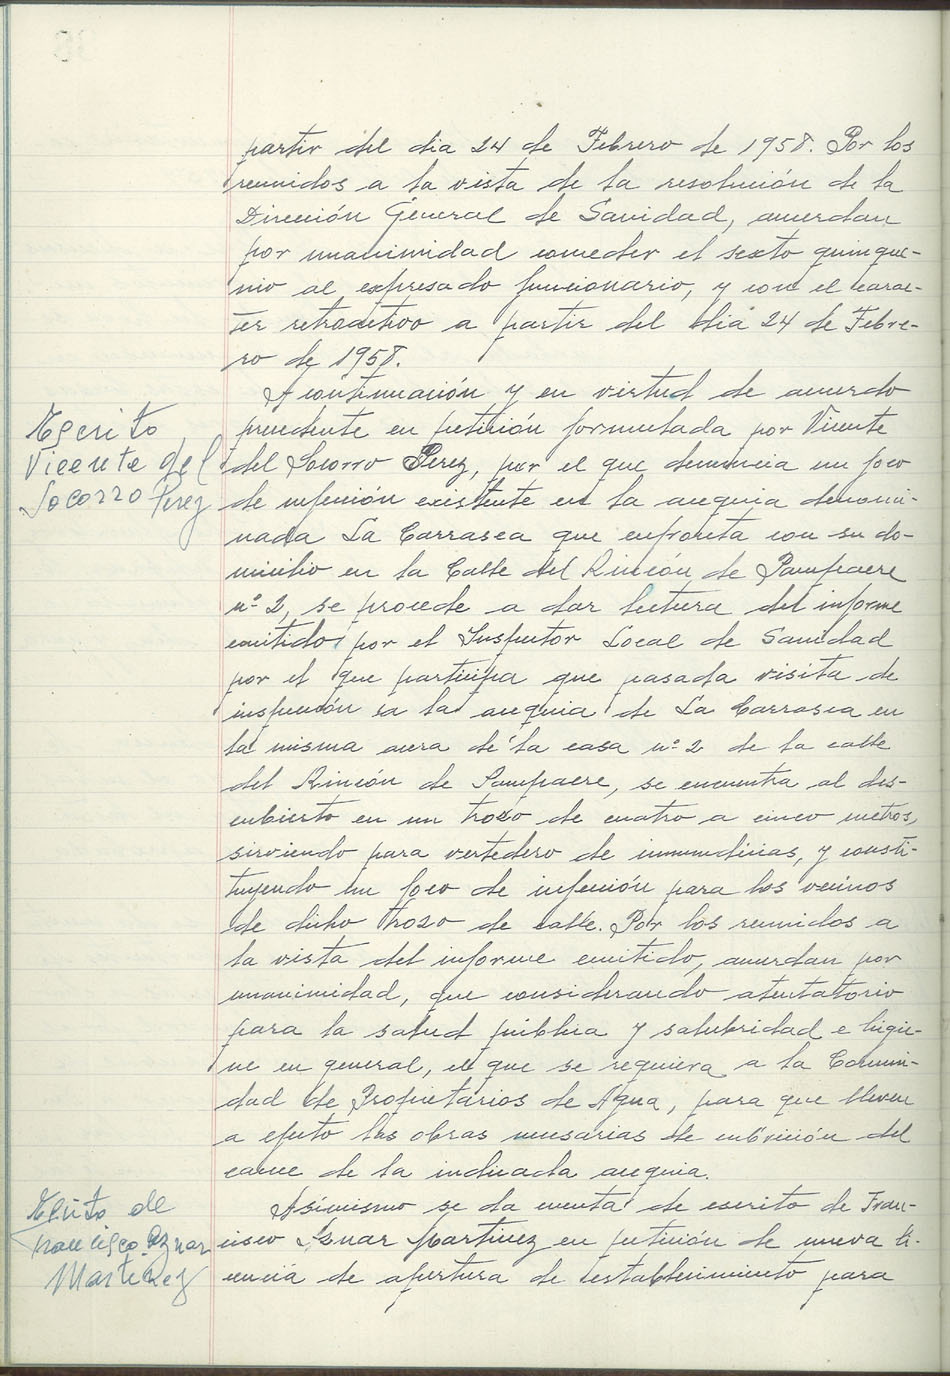 partir del dia 24 de Febrero de 1958. Por los
reunidos a la vista de la resolución de la
Dirección General de Sanidad, acuerdan
por unanimidad conceder el sexto quinque-
nio al expresado funcionario, y con el carac-
ter retroactivo a partir del dia 24 de Febre-
ro de 1958.
A continuación y en virtud de acuerdo
Escrito
precedente en petición formulada por Vicente
Vicente del
del Socorro Perez, por el que denuncia un foco
Socorro Perez
de infección existente en la acequia denomi-
nada La Carrasca que enfronta con su do-
micilio en la Calle del Rincón de Pampaere
nº 2, se procede a dar lectura del informe
emitido por el Inspector Local de Sanidad
por el que participa que pasada visita de
inspección a la acequia de La Carrasca en
la misma acera de la casa nº 2 de la calle
del Rincón de Pampaere, se encuentra al des-
cubierto en un trozo de cuatro a cinco metros,
sirviendo para vertedero de inmundicias, y consti-
tuyendo un foco de infección para los vecinos
de dicho trozo de calle. Por los reunidos a
la vista del informe emitido, acuerdan por
unanimidad, que considerando atentatorio
para la salud publica y salubridad e higie-
ne en general, el que se requiera a la Comuni-
dad de Propietarios de Agua, para que lleven
a efecto las obras necesarias de cubrición del
cauce de la indicada acequia.
Escrito de
Asimismo se da cuenta de escrito de Fran-
Francisco Aznar
cisco Aznar Martinez en petición de nueva li-
Martinez
cencia de apertura de establecimiento para